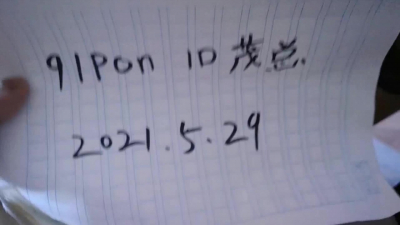 91pon ID 茂总.
2021.5.29